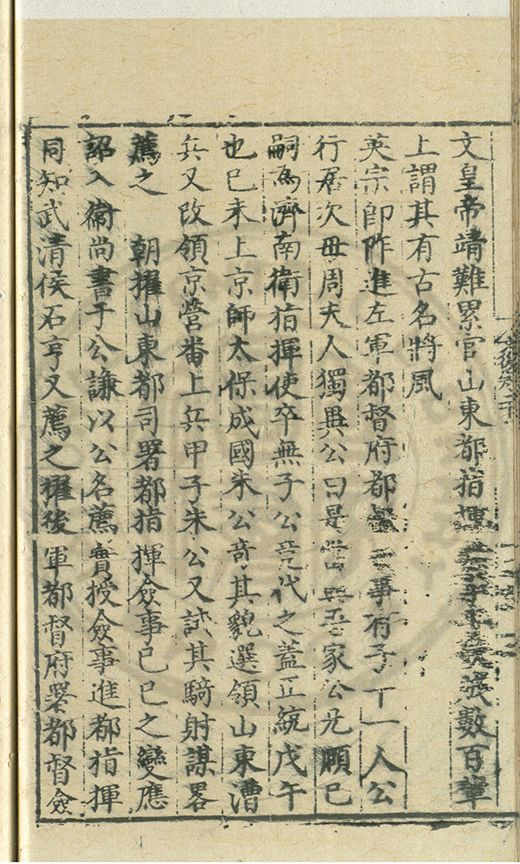 文皇帝靖難累官山東都指揮數百輩
上謂其有古名將風
英宗即阼進左軍都督府都事有子十一人公
行居次毋周夫人獨異公曰是當吾家公兄願巳
嗣爲濟南衛指揮使卒無子公代之蓋正統戊午
也巳未上京師太保成國朱公竒其貌選領山東漕
兵又改領京營畨上兵甲子朱公又試其騎射謀畧
薦之 朝擢山東都司署都指揮僉事巳巳之變應
詔入衛尚書于公謙以公名薦實授僉事進都指揮
同知武清侯石亨又薦之擢後軍都督府署都督僉